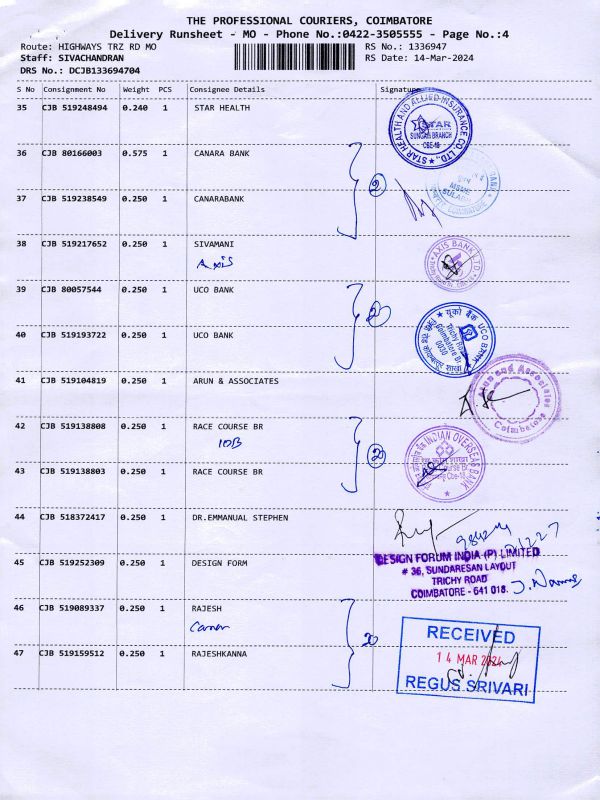 THE PROFESSIONAL COURIERS, COIMBATORE
Delivery Runsheet - MO - Phone No.:0422-3505555 - Page No.:4
Route: HIGHWAYS TRZ RD MO RS No.: 1336947
Staff: SIVACHANDRAN RS Date: 14-Mar-2024
DRS No.: DCJB133694704
S No Consignment No Weight PCS Consignee Details Signature
35 CJB 519248494 0.240 1 STAR HEALTH
STAR HEALTH AND ALLIED INSURANCE CO. LTD.,
STAR
SUNGAM BRANCH
CBE-18
36 CJB 80166003 0.575 1 CANARA BANK
2
MSME
SULABH
COIMBATORE
37 CJB 519238549 0.250 1 CANARABANK
38 CJB 519217652 0.250 1 SIVAMANI
Axis
AXIS BANK LTD
39 CJB 80057544 0.250 1 UCO BANK
2
यूको बैंक UCO BANK
Trichy Road
Coimbatore Br
0030
40 CJB 519193722 0.250 1 UCO BANK
41 CJB 519104819 0.250 1 ARUN & ASSOCIATES
Arun and Associates
Coimbatore
42 CJB 519138808 0.250 1 RACE COURSE BR
IOB
2
INDIAN OVERSEAS BANK
Race Course Br
43 CJB 519138803 0.250 1 RACE COURSE BR
44 CJB 518372417 0.250 1 DR.EMMANUAL STEPHEN
45 CJB 519252309 0.250 1 DESIGN FORM
DESIGN FORUM INDIA (P) LIMITED
# 36, SUNDARESAN LAYOUT
TRICHY ROAD
COIMBATORE - 641 018.
46 CJB 519089337 0.250 1 RAJESH
RECEIVED
14 MAR 2024
REGUS SRIVARI
47 CJB 519159512 0.250 1 RAJESHKANNA